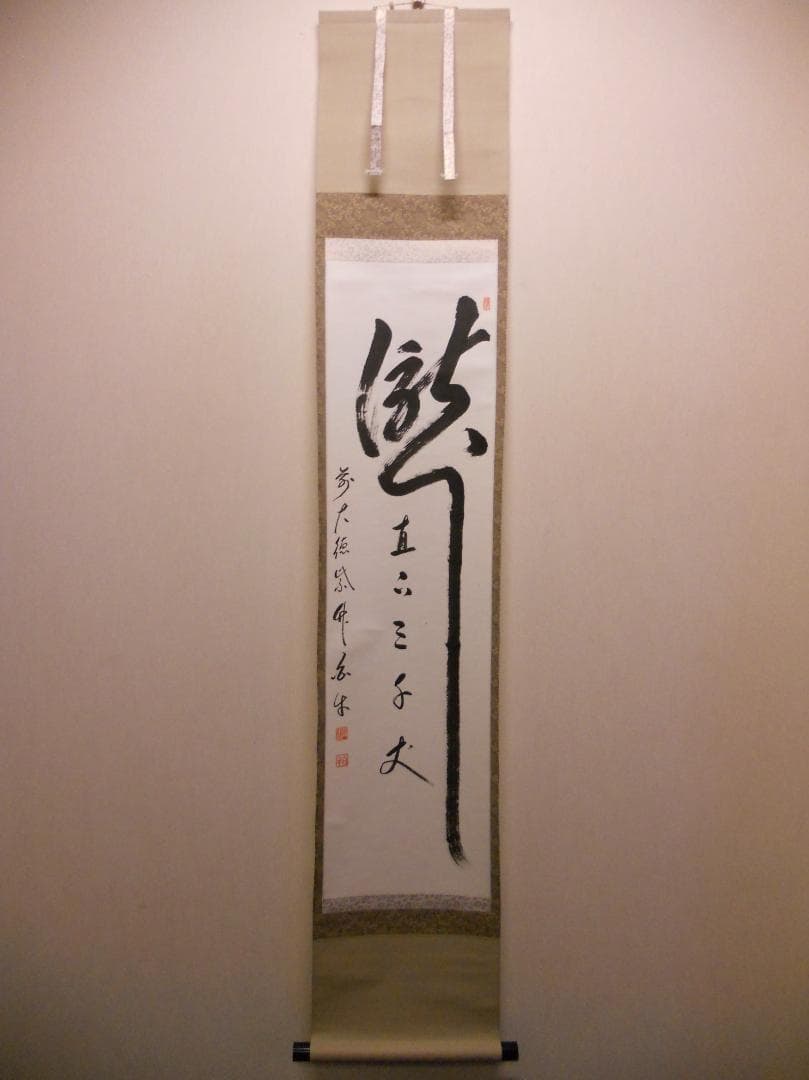 瀧
直下三千丈
前大徳紫野